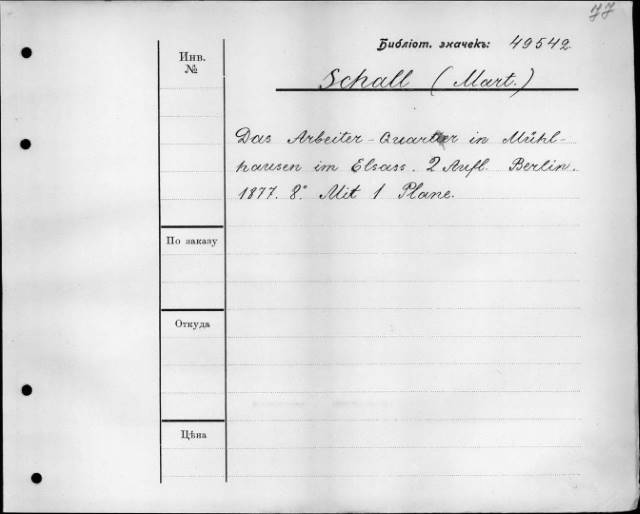 77
Библіот. значекъ: 49542
Инв.
№
Schall (Mart.)
Das Arbeiter-Quartier in Mühl-
hausen im Elsass. 2 Aufl. Berlin.
1877. 8°. Mit 1 Plane.
По заказу
Откуда
Цѣна